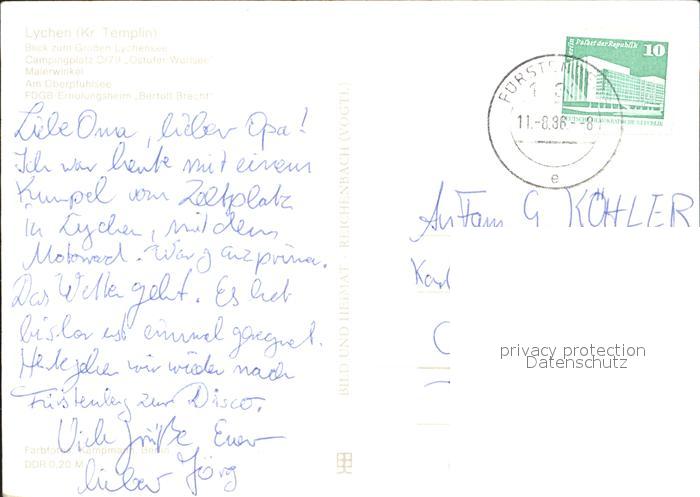 Lychen (Kr. Templin)
Blick zum Großen Lychensee
Campingplatz D/79 „Ostufer Wurlsee"
Malerwinkel
Am Oberpfuhlsee
FDGB-Erholungsheim „Bertolt Brecht"
Liebe Oma, lieber Opa!
Ich war heute mit einem
Kumpel vom Zeltplatz
in Lychen, mit dem
Motorrad. War ganz prima.
Das Wetter geht. Es hat
bisher erst einmal geregnet.
Heute gehen wir wieder nach
Fürstenberg zur Disco.
Viele Grüße Euer
lieber Jörg
Farbfotos: Kampmann, Berlin
DDR 0,20 M
BILD UND HEIMAT · REICHENBACH (VOGTL)
Berlin Palast der Republik
10
DEUTSCHE DEMOKRATISCHE REPUBLIK
FÜRSTENBE
11.-8.86.--8
e
An Fam G KÖHLER
privacy protection
Datenschutz